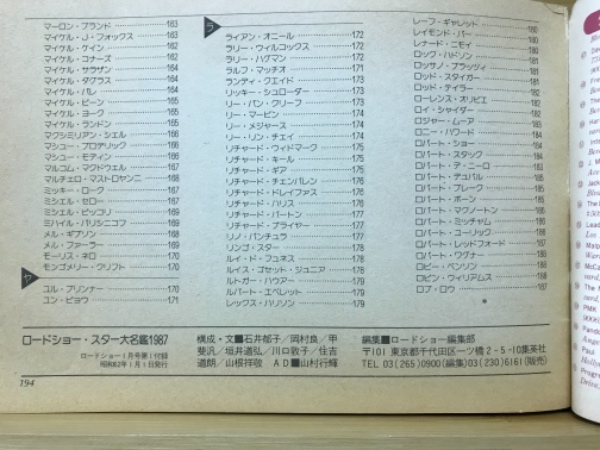 マーロン・ブランド 163
マイケル・J・フォックス 163
マイケル・ケイン 162
マイケル・コナーズ 162
マイケル・サラザン 164
マイケル・ダグラス 164
マイケル・パレ 164
マイケル・ビーン 165
マイケル・ヨーク 165
マイケル・ランドン 165
マクシミリアン・シェル 166
マシュー・ブロデリック 166
マシュー・モディン 166
マルコム・マクドウェル 167
マルチェロ・マストロヤンニ 168
ミッキー・ローク 167
ミシェル・セロー 167
ミシェル・ピッコリ 169
ミハイル・バリシニコフ 169
メル・ギブソン 168
メル・ファーラー 169
モーリス・ネロ 170
モンゴメリー・クリフト 170
ヤ
ユル・ブリンナー 170
ユン・ピョウ 171
ラ
ライアン・オニール 172
ラリー・ウィルコックス 172
ラリー・ハグマン 172
ラルフ・マッチオ 171
ランディ・クエイド 173
リッキー・シュローダー 173
リー・バン・クリーフ 173
リー・マービン 174
リー・メジャース 174
リー・リン・チェイ 174
リチャード・ウィドマーク 175
リチャード・キール 175
リチャード・ギア 175
リチャード・チェンバレン 176
リチャード・ドレイファス 176
リチャード・ハリス 176
リチャード・バートン 177
リチャード・プライヤー 177
リノ・バンチュラ 177
リンゴ・スター 178
ルイ・ド・フュネス 178
ルイス・ゴセット・ジュニア 178
ルトガー・ハウアー 179
ルパート・エベレット 179
レックス・ハリソン 179
レーフ・ギャレット 180
レイモンド・バー 180
レナード・ニモイ 180
ロック・ハドソン 181
ロッサノ・ブラッツィ 181
ロッド・スタイガー 181
ロッド・テイラー 182
ローレンス・オリビエ 182
ロイ・シャイダー 182
ロジャー・ムーア 183
ロニー・ハワード 184
ロバート・ショー 184
ロバート・スタック 184
ロバート・デ・ニーロ 183
ロバート・デュバル 185
ロバート・ブレーク 185
ロバート・ボーン 185
ロバート・マクノートン
ロバート・ミッチャム 186
ロバート・ユーリック
ロバート・レッドフォード
ロバート・ワグナー
ロビー・ベンソン
ロビン・ウィリアムス
ロブ・ロウ 187
ロードショー・スター大名鑑1987
ロードショー1月号第1付録
昭和62年1月1日発行
構成・文■石井郁子/岡村良/甲
斐汎/垣井道弘/川口敦子/住吉
道朗/山根祥敬 AD■山村行輝
編集■ロードショー編集部
〒101 東京都千代田区一ツ橋2-5-10集英社
TEL 03(265)0900(編集)03(230)6161(販売)
194